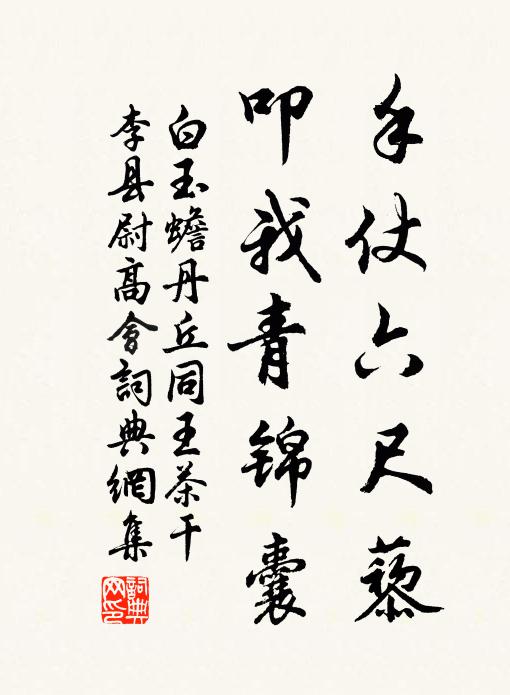 手仗六尺藜
叩我青锦囊
白玉蟾丹丘同王茶干
李县尉高會詞典網集
詞典網印